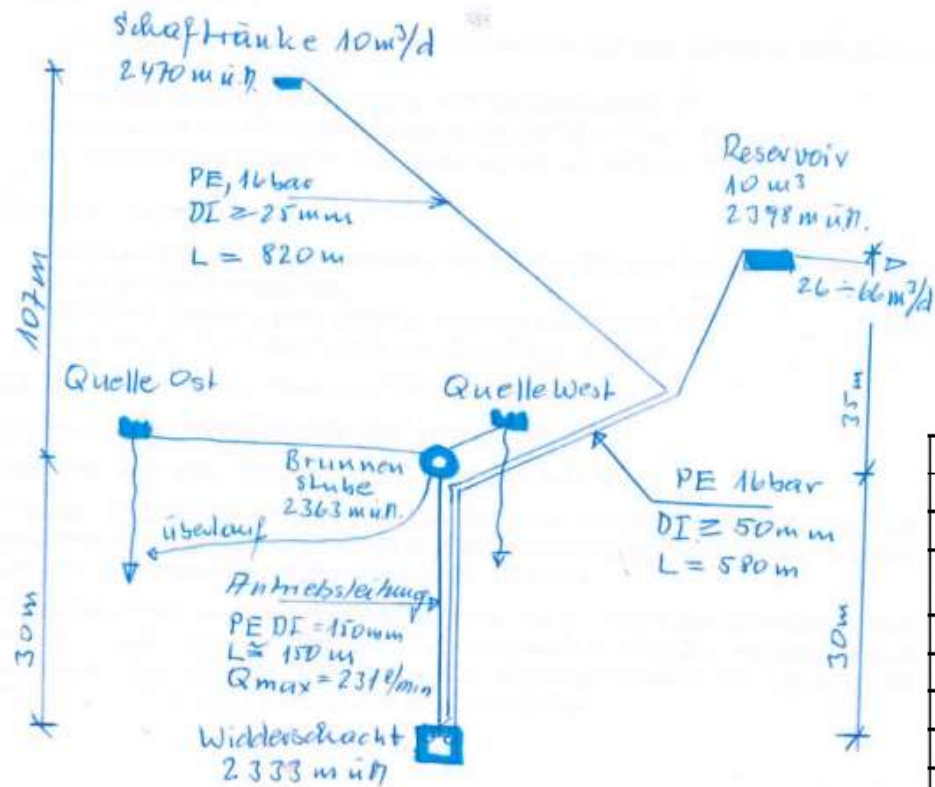 Schaftränke 10m³/d
2470 m ü.M.
107m
PE, 16bar
DI ≥ 25mm
L = 820 m
Reservoir
10 m³
2398 m ü.M.
26÷66m³/d
35m
Quelle Ost
Quelle West
Brunnen
stube
2363 m ü.M.
Überlauf
PE 16bar
DI ≥ 50mm
L = 580 m
Antriebsleitung
PE DI = 150mm
L ≅ 150 m
Qmax = 231 ℓ/min
30m
30m
Widderschacht
2333 m ü.M